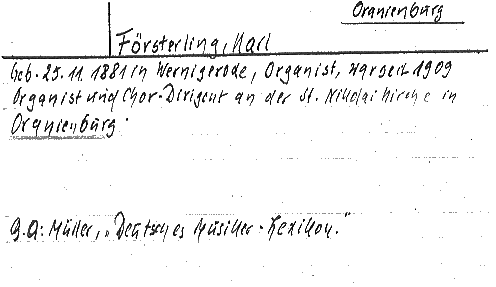 Oranienburg
Försterling, Karl
Geb. 25.11.1881 in Wernigerode, Organist, war seit 1909
Organist und Chor-Dirigent an der St. Nikolai Kirche in
Oranienburg.
E.A: Müller, „Deutsches Musiker-Lexikon."